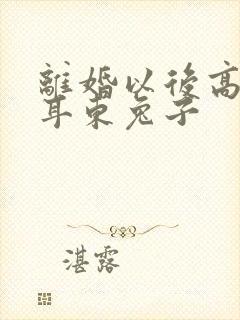 離婚以後高
耳朵兔子
湛露